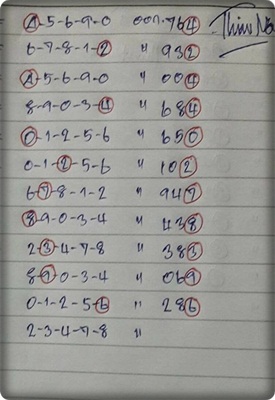 4-5-6-9-0 001.764
6-7-8-1-2 " 932
4-5-6-9-0 " 004
8-9-0-3-4 " 684
0-1-2-5-6 " 650
0-1-2-5-6 " 102
6-7-8-1-2 " 947
8-9-0-3-4 " 438
2-3-4-7-8 " 383
8-9-0-3-4 " 069
0-1-2-5-6 " 286
2-3-4-7-8 "